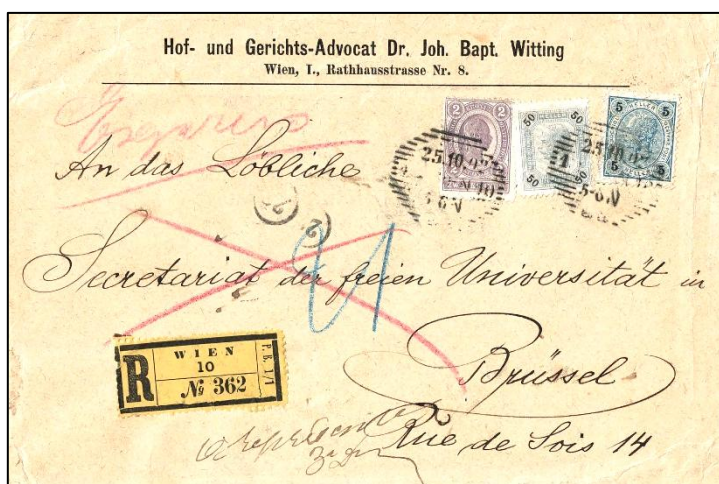 Hof- und Gerichts-Advocat Dr. Joh. Bapt. Witting
Wien, I., Rathhausstrasse Nr. 8.
Express
2 2
50 50
50 50
5 5
5 5
25.10.02
25.10.02
1
5-6N
An das Löbliche
2
Secretariat der freien Universität in
Brüssel
Rue de Sois 14
R
WIEN
10
№ 362
P.B. 1/1